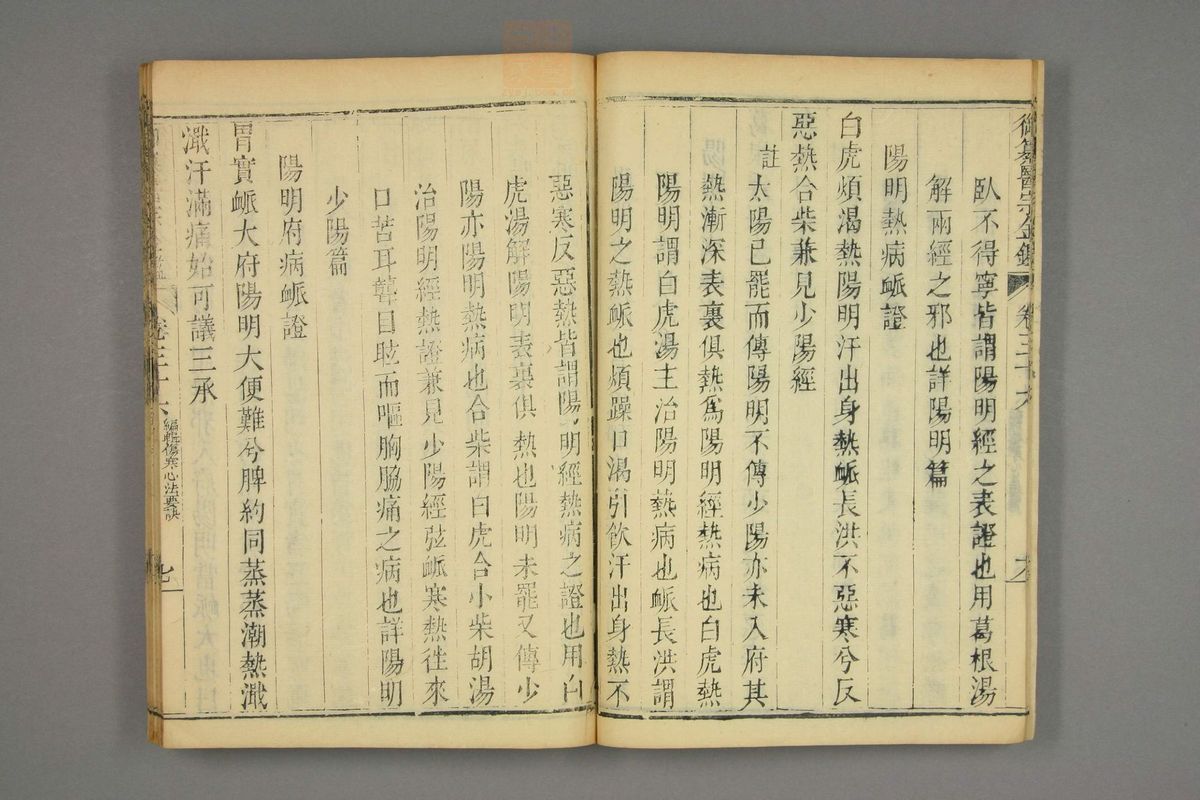 御纂醫宗金鑑 卷三十六 六
臥不得寧皆謂陽明經之表證也用葛根湯
解兩經之邪也詳陽明篇
陽明熱病脈證
白虎煩渴熱陽明汗出身熱脈長洪不惡寒兮反
惡熱合柴兼見少陽經
註太陽已罷而傳陽明不傳少陽亦未入府其
熱漸深表裏俱熱為陽明經熱病也白虎熱
陽明謂白虎湯主治陽明熱病也脈長洪謂
陽明之熱脈也煩躁口渴引飲汗出身熱不
惡寒反惡熱皆謂陽明經熱病之證也用白
虎湯解陽明表裏俱熱也陽明未罷又傳少
陽亦陽明熱病也合柴謂白虎合小柴胡湯
治陽明經熱證兼見少陽經弦脈寒熱往來
口苦耳聾目眩而嘔胸脇痛之病也詳陽明
少陽篇
陽明府病脈證
胃實脈大府陽明大便難兮脾約同蒸蒸潮熱濈
濈汗滿痛始可議三承
卷三十六 編輯傷寒心法要訣 七